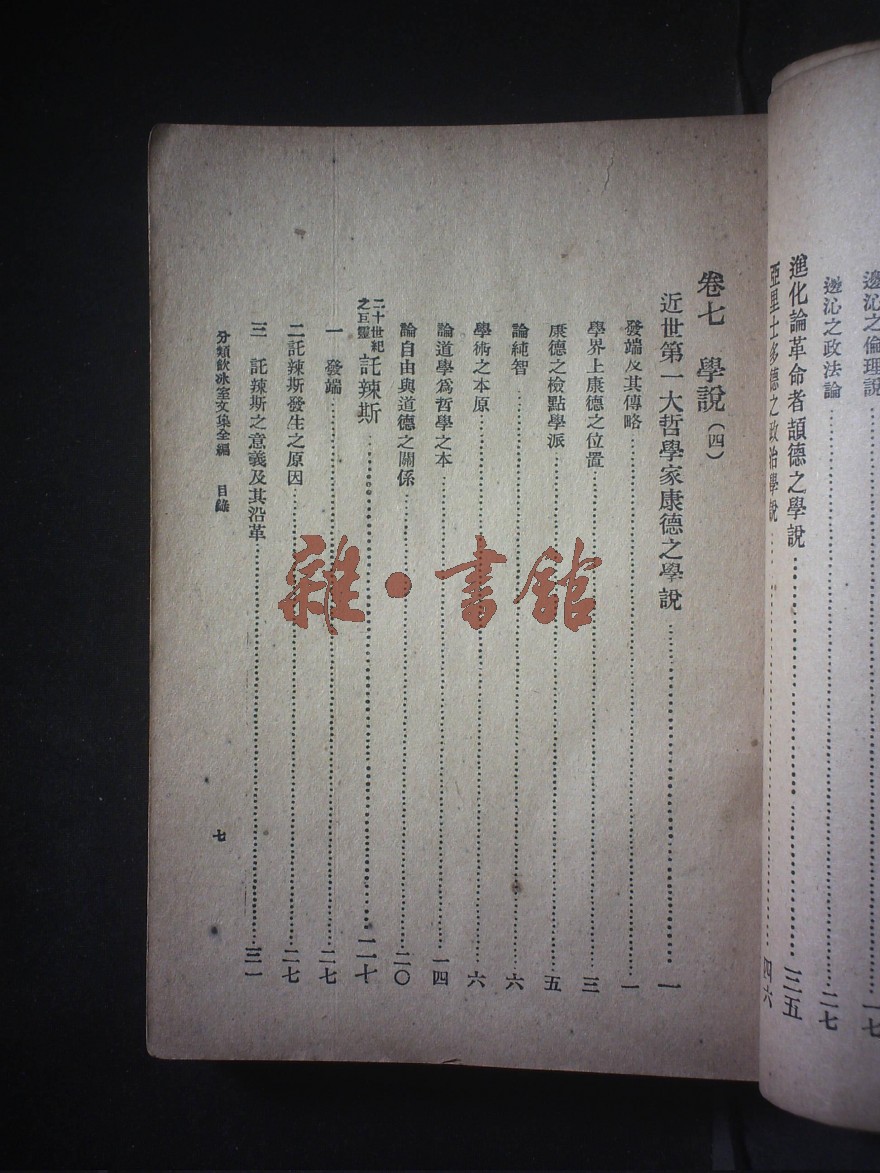 邊沁之倫理說……一七
邊沁之政法論……二七
進化論革命者頡德之學說……三五
亞里士多德之政治學說……四六
卷七　學說（四）
近世第一大哲學家康德之學說……一
發端及其傳略……一
學界上康德之位置……三
康德之檢點學派……五
論純智……六
學術之本原……六
論道學爲哲學之本……一四
論自由與道德之關係……二〇
二十世紀之巨靈託辣斯……二七
一　發端……二七
二　託辣斯發生之原因……二七
三　託辣斯之意義及其沿革……三一
分類飲冰室文集全編　目錄
七
雜·書館